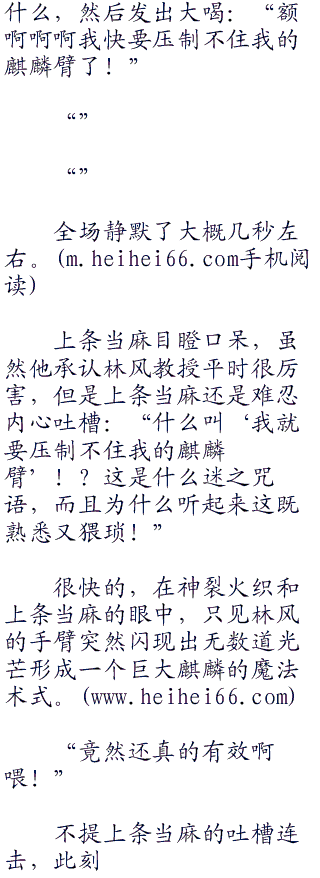 什么，然后发出大喝：“额
啊啊啊我快要压制不住我的
麒麟臂了！”
“”
“”
全场静默了大概几秒左
右。(m.heihei66.com手机阅
读)
上条当麻目瞪口呆，虽
然他承认林风教授平时很厉
害，但是上条当麻还是难忍
内心吐槽：“什么叫‘我就
要压制不住我的麒麟
臂’！？这是什么迷之咒
语，而且为什么听起来这既
熟悉又猥琐！”
很快的，在神裂火织和
上条当麻的眼中，只见林风
的手臂突然闪现出无数道光
芒形成一个巨大麒麟的魔法
术式。(www.heihei66.com)
“竟然还真的有效啊
喂！”
不提上条当麻的吐槽连
击，此刻